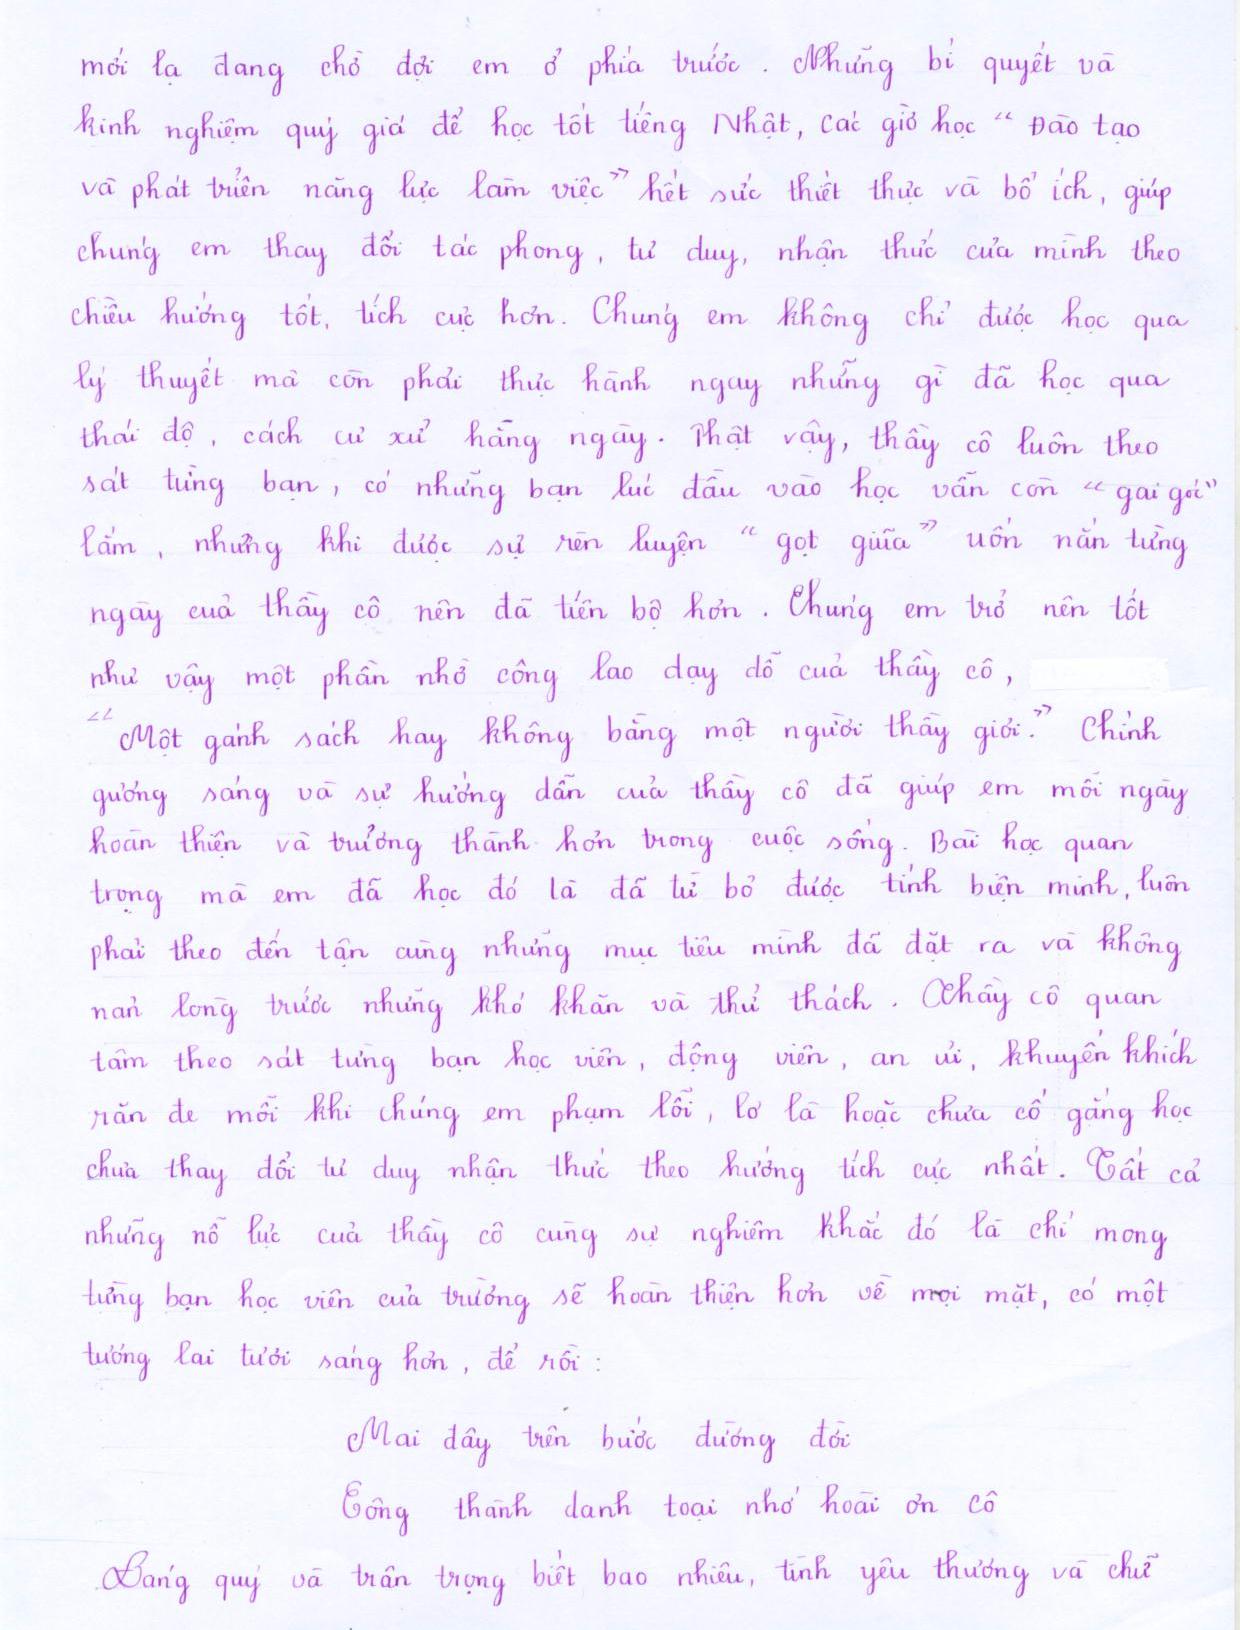 mới lạ đang chờ đợi em ở phía trước. Những bí quyết và
kinh nghiệm quý giá để học tốt tiếng Nhật, các giờ học "Đào tạo
và phát triển năng lực làm việc" hết sức thiết thực và bổ ích, giúp
chúng em thay đổi tác phong, tư duy, nhận thức của mình theo
chiều hướng tốt, tích cực hơn. Chúng em không chỉ được học qua
lý thuyết mà còn phải thực hành ngay những gì đã học qua
thái độ, cách cư xử hằng ngày. Thật vậy, thầy cô luôn theo
sát từng bạn, có những bạn lúc đầu vào học vẫn còn "gai góc"
lắm, nhưng khi được sự rèn luyện "gọt giũa" uốn nắn từng
ngày của thầy cô nên đã tiến bộ hơn. Chúng em trở nên tốt
như vậy một phần nhờ công lao dạy dỗ của thầy cô,
"Một gánh sách hay không bằng một người thầy giỏi." Chính
gương sáng và sự hướng dẫn của thầy cô đã giúp em mỗi ngày
hoàn thiện và trưởng thành hơn trong cuộc sống. Bài học quan
trọng mà em đã học đó là đã từ bỏ được tính biện minh, luôn
phải theo đến tận cùng những mục tiêu mình đã đặt ra và không
nản lòng trước những khó khăn và thử thách. Thầy cô quan
tâm theo sát từng bạn học viên, động viên, an ủi, khuyến khích
răn đe mỗi khi chúng em phạm lỗi, lơ là hoặc chưa cố gắng học
chưa thay đổi tư duy nhận thức theo hướng tích cực nhất. Tất cả
những nỗ lực của thầy cô cùng sự nghiêm khắc đó là chỉ mong
từng bạn học viên của trường sẽ hoàn thiện hơn về mọi mặt, có một
tương lai tươi sáng hơn, để rồi:
Mai đây trên bước đường đời
Công thành danh toại nhớ hoài ơn cô
Đáng quý và trân trọng biết bao nhiêu, tình yêu thương và chữ